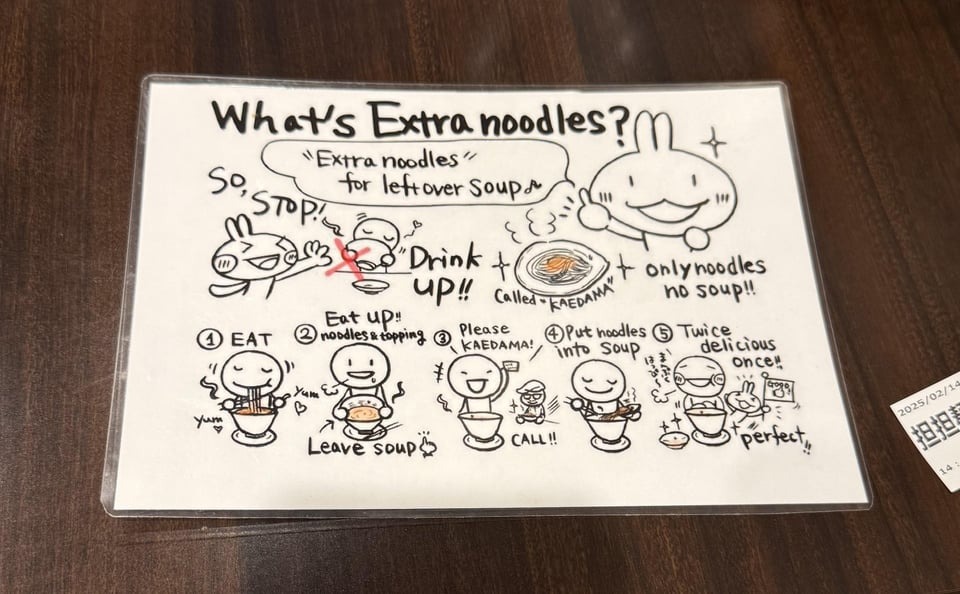 What's Extra noodles?
"Extra noodles"
for leftover soup♪
So, STOP!
Drink
up!!
Called "KAEDAMA"
only noodles
no soup!!
① EAT
Yum
② Eat up!!
noodles & topping
Yum
Leave soup
③ Please
KAEDAMA!
CALL!!
④ Put noodles
into soup
⑤ Twice
delicious
once!!
perfect!!
2025/02/14
担担
14: